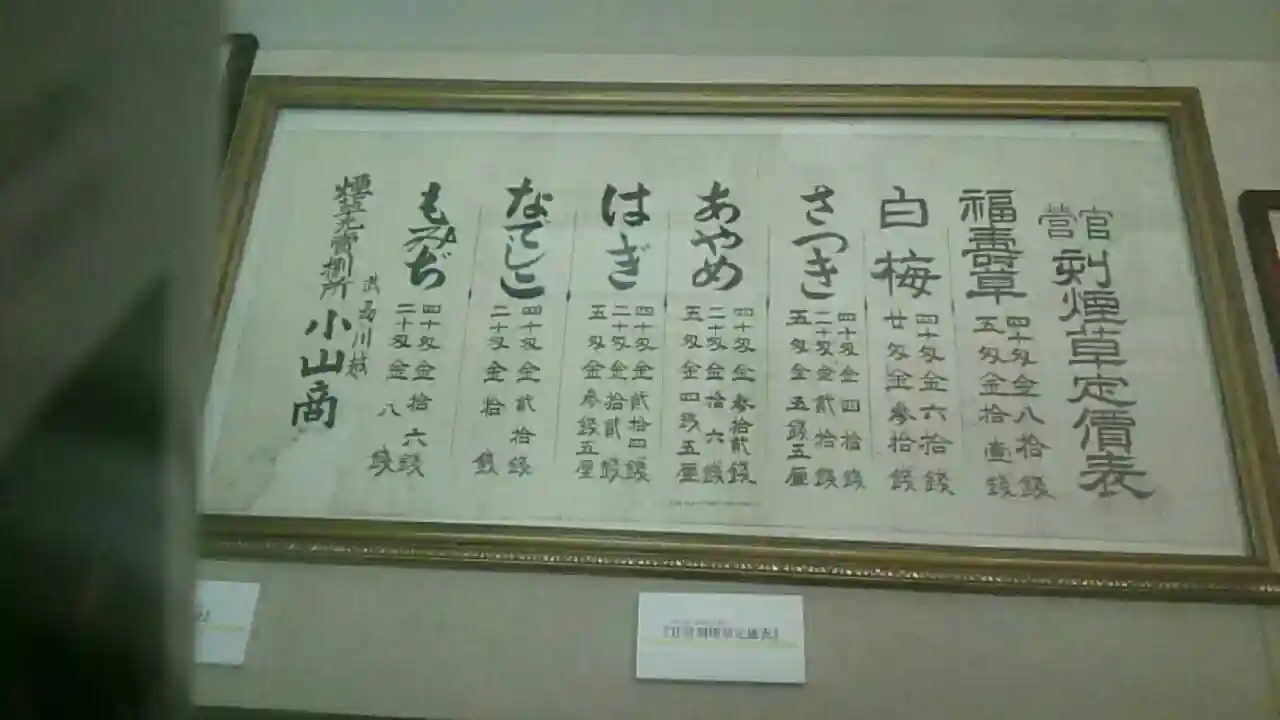 官営 刻煙草定價表
福壽草
四十匁金八拾錢
五匁金拾壹錢
白梅
四十匁金六拾錢
廿匁金参拾錢
さつき
四十匁金四拾錢
二十匁金貳拾錢
五匁金五錢五厘
あやめ
四十匁金参拾貳錢
二十匁金拾六錢
五匁金四錢五厘
はぎ
四十匁金貳拾四錢
二十匁金拾貳錢
五匁金参錢五厘
なでしこ
四十匁金貳拾錢
二十匁金拾錢
もみぢ
四十匁金拾六錢
二十匁金八錢
武州川越
煙草元賣捌所 小山商
『官営刻煙草定価表』